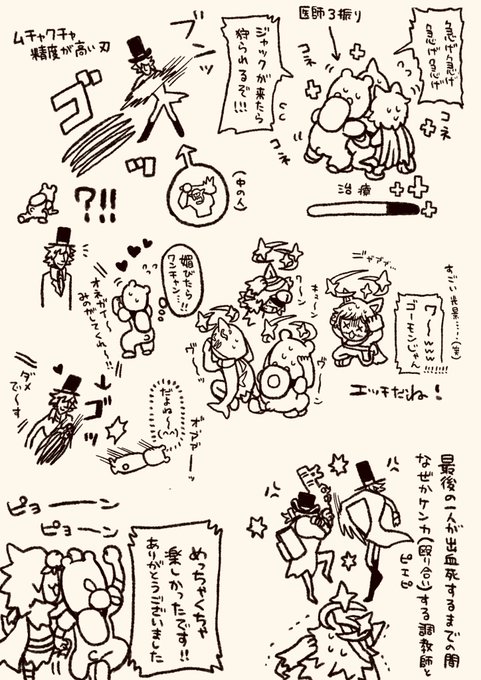 急げ急げ
急げ急げ
医師3振り
コネ
コネ
コネ
ジャックが来たら
狩られるぞ!!!
治療
ブンッ
ムチャクチャ
精度が高い刃
ゴ
ッ
(中の人)
?!!
媚びたら
ワンチャン…!!
オネガイ〜
みのがしてくれ〜!!
すごい光景…(笑)
ワ〜www
ゴーモンじゃん
!!!!!!!
エッチだね!
クーン
キューン
ヴーッ
ヴーン
ダメ
で〜す
ゴッ
だよね〜(^^)
オアアアーッ
最後の一人が出血死するまでの間
なぜかケンカ(殴り合い)する調教師と
ピエピ
ピョーーン
ピョーーン
めっちゃくちゃ
楽しかったです!!
ありがとうございました